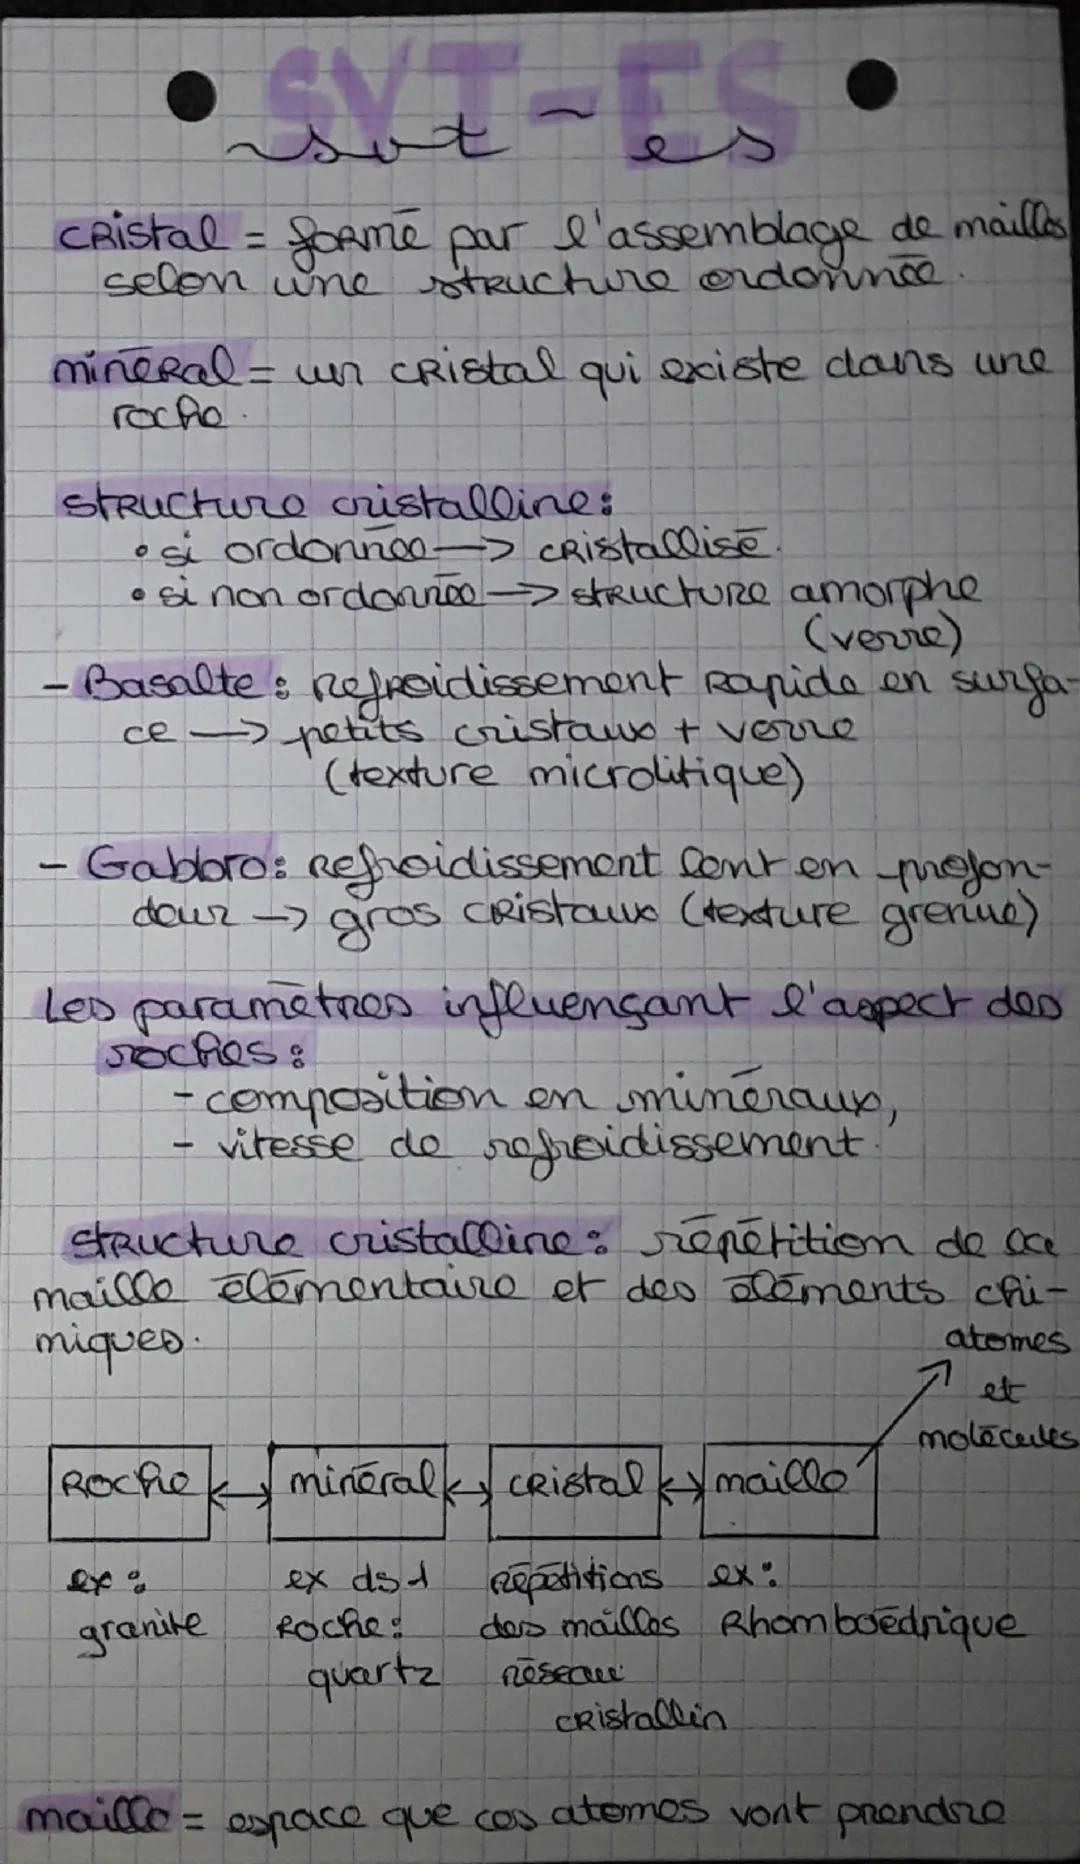 SVT-ES
svt - es
cristal = formé par l'assemblage de mailles
selon une structure ordonnée.
minéral = un cristal qui existe dans une
roche.
structure cristalline :
• si ordonnée → cristallisé.
• si non ordonnée → structure amorphe
(verre)
- Basalte : refroidissement rapide en surfa-
ce → petits cristaux + verre
(texture microlitique)
- Gabbro : refroidissement lent en profon-
deur → gros cristaux (texture grenue)
Les paramètres influençant l'aspect des
roches :
- composition en minéraux,
- vitesse de refroidissement.
structure cristalline : répétition de
maille élémentaire et des éléments chi-
miques.
atomes
et
molécules
Roche ↔ minéral ↔ cristal ↔ maille
ex : ex ds 1 répétitions ex :
granite Roche : des mailles Rhomboédrique
quartz réseau
cristallin
maille = espace que ces atomes vont prendre